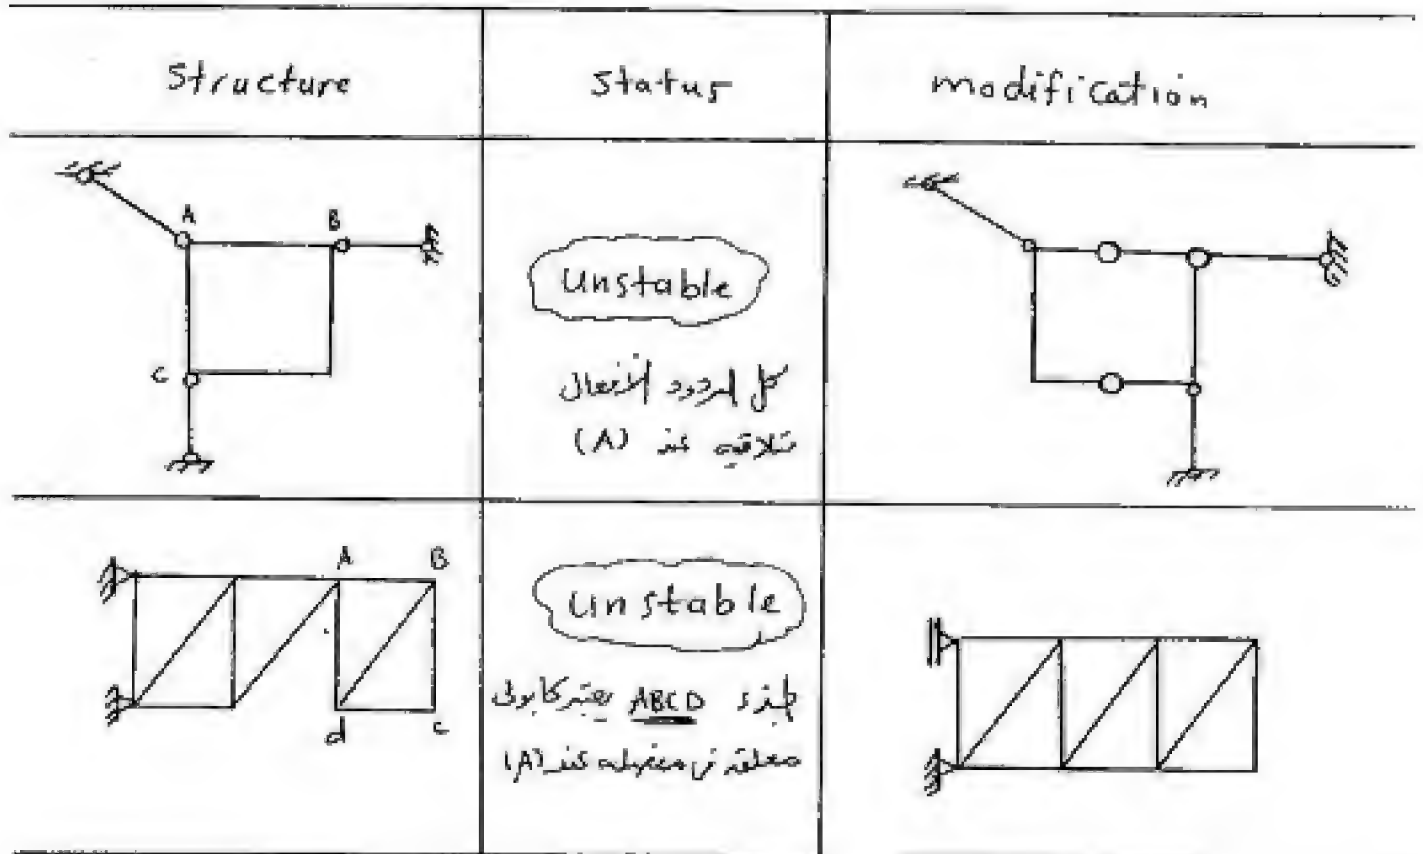 Structure
Status
modification
A
B
C
Unstable
كل الردود الأفعال
تتلاقى عند (A)
A
B
d
c
Unstable
الجزء ABCD يعتبر كابولى
معلق فى مفصله عند (A)